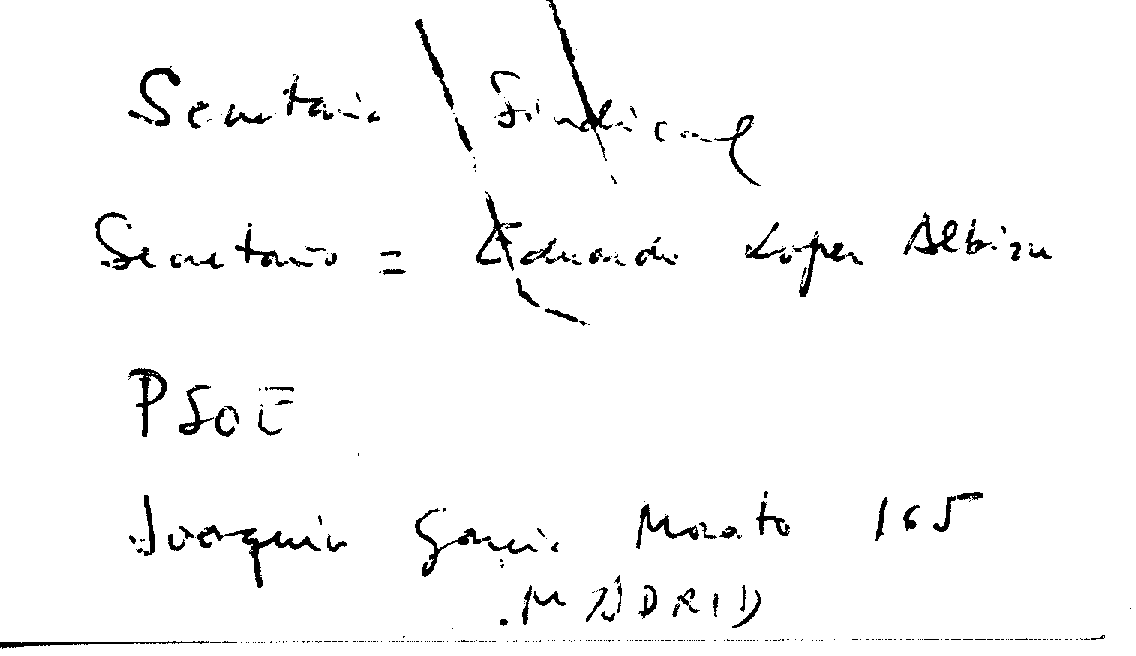 Secretaria Sindical
Secretario = Eduardo Lopez Albizu
PSOE
Joaquin Garcia Morato 165
MADRID